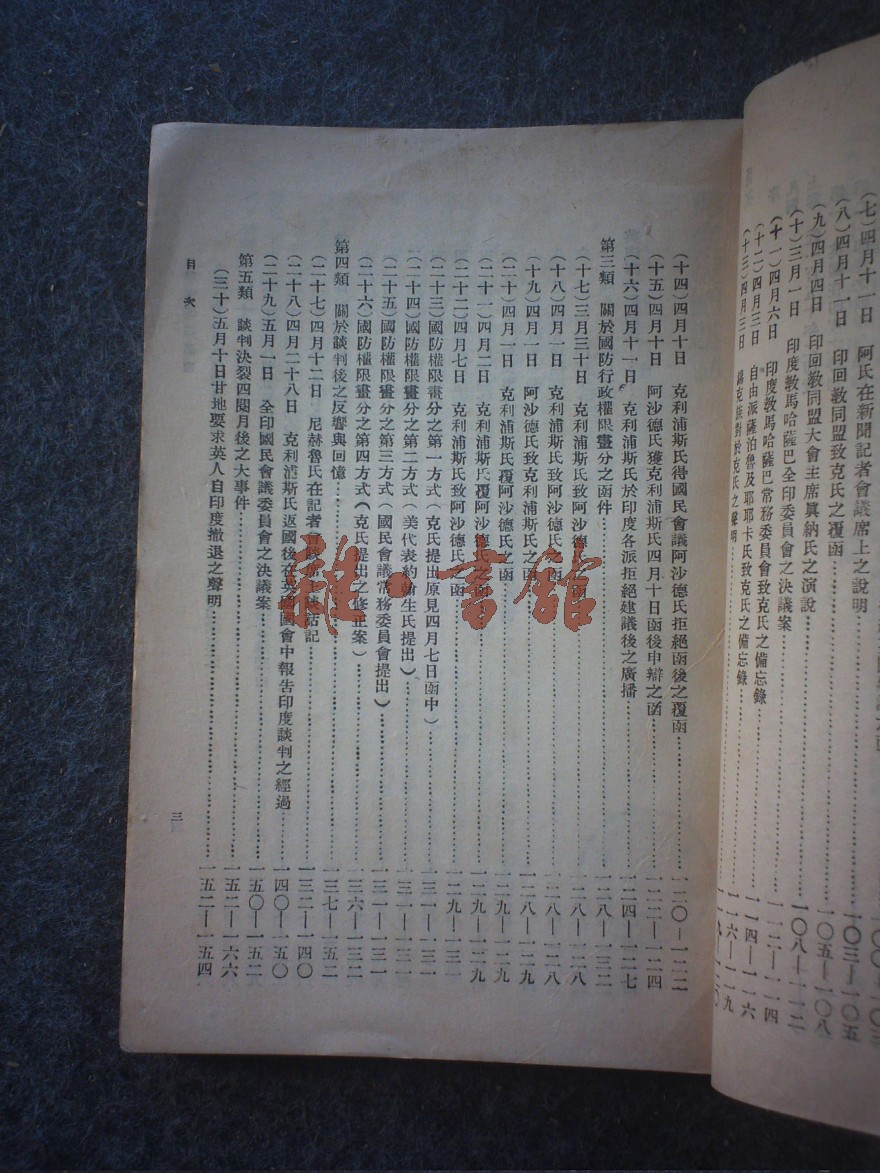 (七)四月十一日 阿氏在新聞記者會議席上之說明
(八)四月十一日 印回教同盟致克氏之覆函
(九)四月四日 印回教同盟大會主席眞納氏之演說
(十)三月一日 印度教馬哈薩巴全印委員會之決議案
(十一)四月六日 印度教馬哈薩巴常務委員會致克氏之備忘錄
(十二)四月三日 自由派薩泊魯及耶耶卡氏致克氏之備忘錄
(十三)四月三日 錫克族對於克氏之聲明
一〇三—一〇五
一〇五—一〇八
一〇八—一一二
一一二—一一四
一一四—一一六
一一六—一一九
(十四)四月十日 克利浦斯氏得國民會議阿沙德氏拒絕函後之覆函 一二〇—一二二
(十五)四月十日 阿沙德氏獲克利浦斯氏四月十日函後申辯之函 一二二—一二四
(十六)四月十一日 克利浦斯氏於印度各派拒絕建議後之廣播 一二四—一二七
第三類 關於國防行政權限畫分之函件 一二八—一三二
(十七)三月三十日 克利浦斯氏致阿沙德氏之函 一二八—一二八
(十八)四月一日 克利浦斯氏致阿沙德氏之函 一二八—一二八
(十九)四月一日 阿沙德氏致克利浦斯氏之函 一二八—一二九
(二十)四月一日 克利浦斯氏覆阿沙德氏之函 一二九—一二九
(二十一)四月二日 克利浦斯氏覆阿沙德氏之函 一二九—一二九
(二十二)四月七日 克利浦斯氏致阿沙德氏之函 一二九—一三一
(二十三)國防權限畫分之第一方式(克氏提出原見四月七日函中) 一三一—一三一
(二十四)國防權限畫分之第二方式(美代表約翰生氏提出) 一三一—一三一
(二十五)國防權限畫分之第三方式(國民會議常務委員會提出) 一三一—一三一
(二十六)國防權限畫分之第四方式(克氏提出之修正案) 一三六—一三二
第四類 關於談判後之反響與回憶 一三七—一五二
(二十七)四月十二日 尼赫魯氏在記者會議席上談話記 一三二—一四〇
(二十八)四月二十八日 克利浦斯氏返國後在英國國會中報告印度談判之經過 一四〇—一五〇
(二十九)五月一日 全印國民會議委員會之決議案 一五〇—一五二
第五類 談判決裂四閱月後之大事件 一五二—一六六
(三十)五月十日甘地要求英人自印度撤退之聲明 一五二—一五四
目次
三
雜·書館